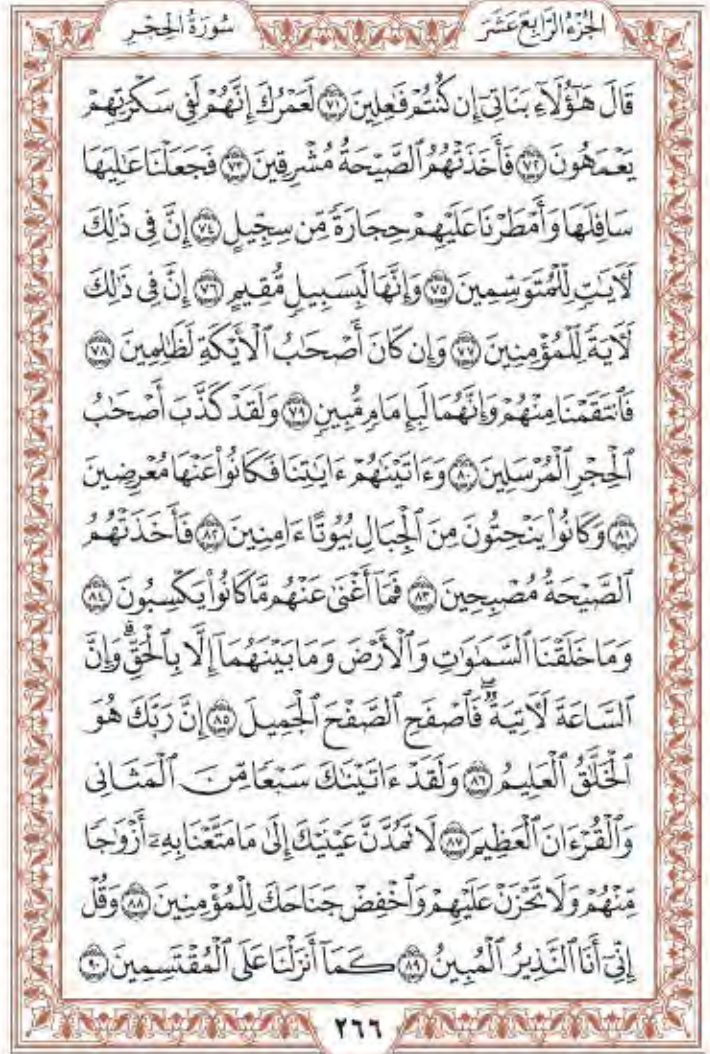 الجُزْءُ الرَّابِعَ عَشَرَ سُورَةُ الحِجْرِ
قَالَ هَٰٓؤُلَآءِ بَنَاتِىٓ إِن كُنتُمْ فَٰعِلِينَ ٧١ لَعَمْرُكَ إِنَّهُمْ لَفِى سَكْرَتِهِمْ
يَعْمَهُونَ ٧٢ فَأَخَذَتْهُمُ ٱلصَّيْحَةُ مُشْرِقِينَ ٧٣ فَجَعَلْنَا عَٰلِيَهَا
سَافِلَهَا وَأَمْطَرْنَا عَلَيْهِمْ حِجَارَةً مِّن سِجِّيلٍ ٧٤ إِنَّ فِى ذَٰلِكَ
لَءَايَٰتٍ لِّلْمُتَوَسِّمِينَ ٧٥ وَإِنَّهَا لَبِسَبِيلٍ مُّقِيمٍ ٧٦ إِنَّ فِى ذَٰلِكَ
لَءَايَةً لِّلْمُؤْمِنِينَ ٧٧ وَإِن كَانَ أَصْحَٰبُ ٱلْأَيْكَةِ لَظَٰلِمِينَ ٧٨
فَٱنتَقَمْنَا مِنْهُمْ وَإِنَّهُمَا لَبِإِمَامٍ مُّبِينٍ ٧٩ وَلَقَدْ كَذَّبَ أَصْحَٰبُ
ٱلْحِجْرِ ٱلْمُرْسَلِينَ ٨٠ وَءَاتَيْنَٰهُمْ ءَايَٰتِنَا فَكَانُوا۟ عَنْهَا مُعْرِضِينَ
٨١ وَكَانُوا۟ يَنْحِتُونَ مِنَ ٱلْجِبَالِ بُيُوتًا ءَامِنِينَ ٨٢ فَأَخَذَتْهُمُ
ٱلصَّيْحَةُ مُصْبِحِينَ ٨٣ فَمَآ أَغْنَىٰ عَنْهُم مَّا كَانُوا۟ يَكْسِبُونَ ٨٤
وَمَا خَلَقْنَا ٱلسَّمَٰوَٰتِ وَٱلْأَرْضَ وَمَا بَيْنَهُمَآ إِلَّا بِٱلْحَقِّ ۗ وَإِنَّ
ٱلسَّاعَةَ لَءَاتِيَةٌ ۖ فَٱصْفَحِ ٱلصَّفْحَ ٱلْجَمِيلَ ٨٥ إِنَّ رَبَّكَ هُوَ
ٱلْخَلَّٰقُ ٱلْعَلِيمُ ٨٦ وَلَقَدْ ءَاتَيْنَٰكَ سَبْعًا مِّنَ ٱلْمَثَانِى
وَٱلْقُرْءَانَ ٱلْعَظِيمَ ٨٧ لَا تَمُدَّنَّ عَيْنَيْكَ إِلَىٰ مَا مَتَّعْنَا بِهِۦٓ أَزْوَٰجًا
مِّنْهُمْ وَلَا تَحْزَنْ عَلَيْهِمْ وَٱخْفِضْ جَنَاحَكَ لِلْمُؤْمِنِينَ ٨٨ وَقُلْ
إِنِّىٓ أَنَا ٱلنَّذِيرُ ٱلْمُبِينُ ٨٩ كَمَآ أَنزَلْنَا عَلَى ٱلْمُقْتَسِمِينَ ٩٠
٢٦٦